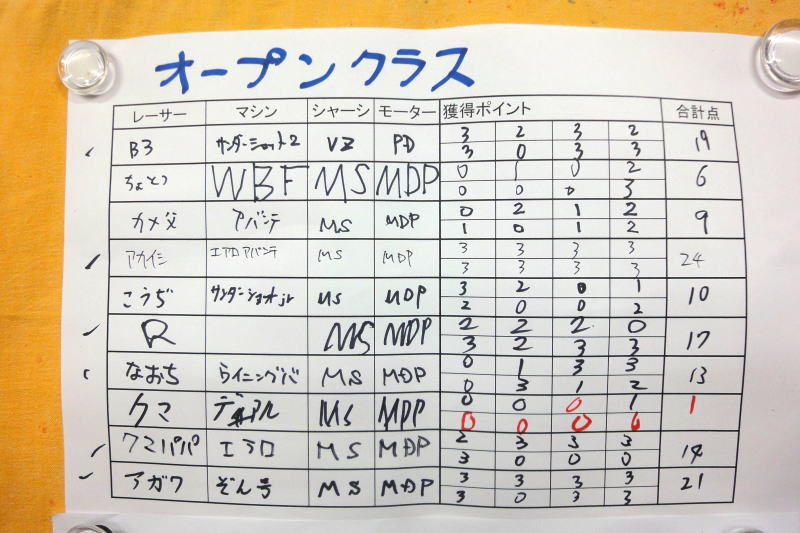 オープンクラス
レーサー マシン シャーシ モーター 獲得ポイント 合計点
B3 サンダーショット2 VZ PD 3 2 3 2 19
3 0 3 3
ちょとつ WBF MS MDP 0 1 0 2 6
0 0 0 3
カメ父 アバンテ MS MDP 0 2 1 2 9
1 0 1 2
アカイシ エアロアバンテ MS MDP 3 3 3 3 24
3 3 3 3
こうぢ サンダーショットjr MS MDP 3 2 0 1 10
2 0 0 2
R MS MDP 2 2 2 0 17
3 2 3 3
なおち らイニングバ MS MDP 0 1 3 3 13
0 3 1 2
クマ MS MDP 0 0 0 1 1
0 0 0 0
クマパパ エアロ MS MDP 2 3 3 3 14
3 0 0 0
アガワ ぞん号 MS MDP 3 3 3 3 21
3 0 3 3